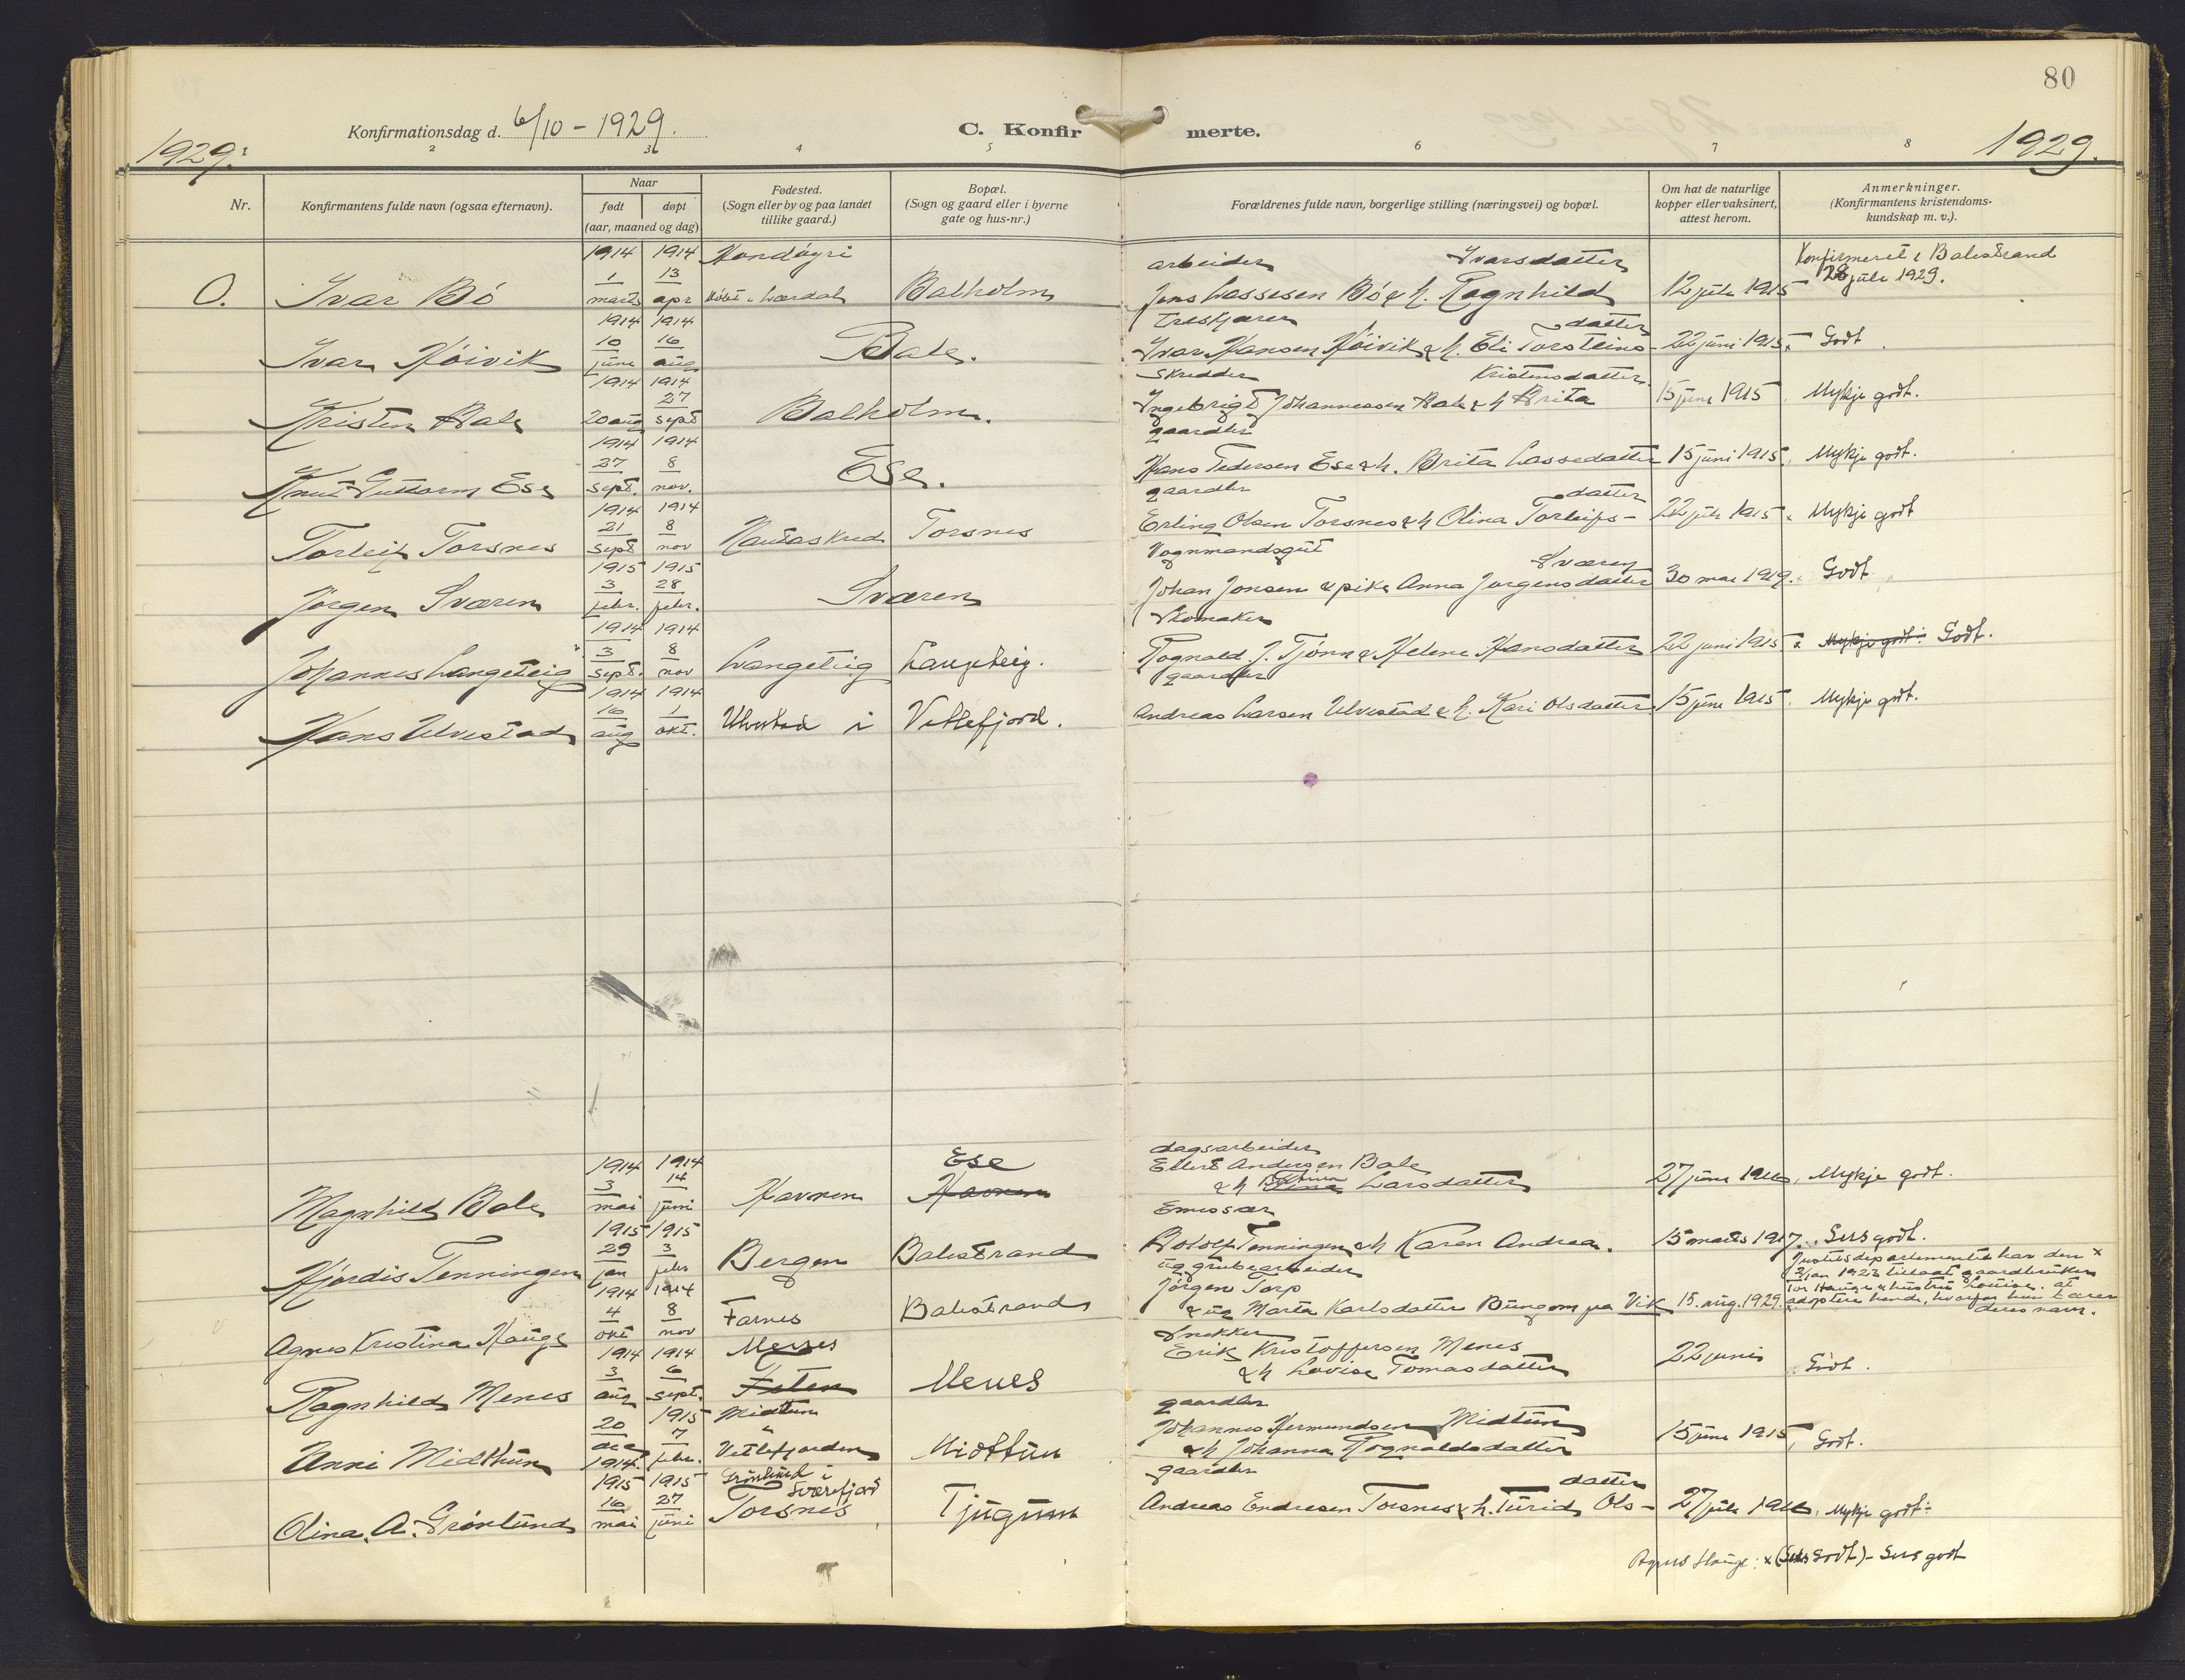 80
1929.
Konfirmationsdag d. 6/10 - 1929.
C. Konfirmerte.
1929.
2 3 4 5 6 7 8
Nr.
Konfirmantens fulde navn (ogsaa efternavn).
Naar
født døpt
(aar, maaned og dag)
Fødested.
(Sogn eller by og paa landet
tillike gaard.)
Bopæl.
(Sogn og gaard eller i byerne
gate og hus-nr.)
Forældrenes fulde navn, borgerlige stilling (næringsvei) og bopæl.
Om hat de naturlige
kopper eller vaksinert,
attest herom.
Anmerkninger.
(Konfirmantens kristendoms-
kundskap m. v.).
1914 1914 arbeider Ivarsdatter Konfirmeret i Balestrand
O. Ivar Bö 1 marts 13 apr Balholm Jens Lassesen Bö & h. Ragnhild 12 juli 1915 28 juli 1929.
1914 1914 treskjærer datter
Ivar Höivik 10 juni 16 aug Bale. Ivar Hansen Höivik & h. Eli Torsteins- 22 juni 1915. Godt.
1914 1914 Skredder Kristensdatter
Kristen Bale 20 aug 27 sept Balholm. Ingebrigt Johannessen Bale & h Brita 15 juni 1915 Mykje godt.
1914 1914 gaardbr
Knut Guttorm Ese 27 sept. 8 nov. Ese. Hans Pedersen Ese & h. Brita Lassedatter 15 juni 1915. Mykje godt.
1914 1914 gaardbr datter
Torleif Torsnes 21 sept 8 nov Nautaskred Torsnes Erling Olsen Torsnes & h Olina Torleifs- 22 juli 1915 Mykje godt
1915 1915 Vognmandsgut Sværen
Jörgen Sværen 3 febr. 28 febr. Sværen Johan Jonsen & pike Anna Jørgensdatter 30 mai 1919. Godt
1914 1914 Skomaker
Johannes Langeteig 3 sept. 8 nov Langeteig Langeteig. Rognald J. Tjönn & Helene Hansdatter 22 juni 1915 Mykje godt. Godt.
1914 1914 gaardbr
Hans Ulvestad 16 aug 1 okt. Ulvestad i Vetlefjord. Andreas Larsen Ulvestad & h. Kari Olsdatter 15 juni 1915. Mykje godt.
1914 1914 Ese dagsarbeider
Ellert Andersen Bale
Magnhild Bale 3 mai 14 juni Havnen Havnen & h Larsdatter 27 juni 1916, Mykje godt.
1915 1915 Emissær
Hjørdis Tenningen 29 jan 3 febr Bergen Balestrand Botolf Tenningen & h Karen Andrea. 15 marts 1917. Sers godt.
1914 1914 ug grubearbeider Justisdepartementet har den
Jörgen Torp 2/jan 1923 tillaat gaardbruker
Tor Hauge & hustru Louise. at
Agnes Kristina Hauge 4 okt 8 nov Farnes Balestrand & ug Marta Karlsdatter Bungom paa Vik 15. aug. 1929. adoptere hende, hvorfor hun bærer
deres navn.
1914 1914 Menes Snekker
Erik Kristoffersen Menes
Ragnhild Menes 3 aug 6 sept. Menes & h Lovise Tomasdatter 22 juni Godt.
1915 Midttun gaardbr
Unni Midttun 20 dec 1914. 7 febr. Vetlefjorden Midttun Johannes Hermundsen Midttun
& h Johanna Rognaldsdatter 15 juni 1915, Godt.
1915 1915 Grönlund i Sværefjord gaardbr datter
Olina. A. Grönlund 16 mai 27 juni Torsnes Tjugum Andreas Endresen Torsnes & h. Turid Ols- 27 juli 1916, Mykje godt.
Agnes Hauge: x (Sers Godt) - Sers godt